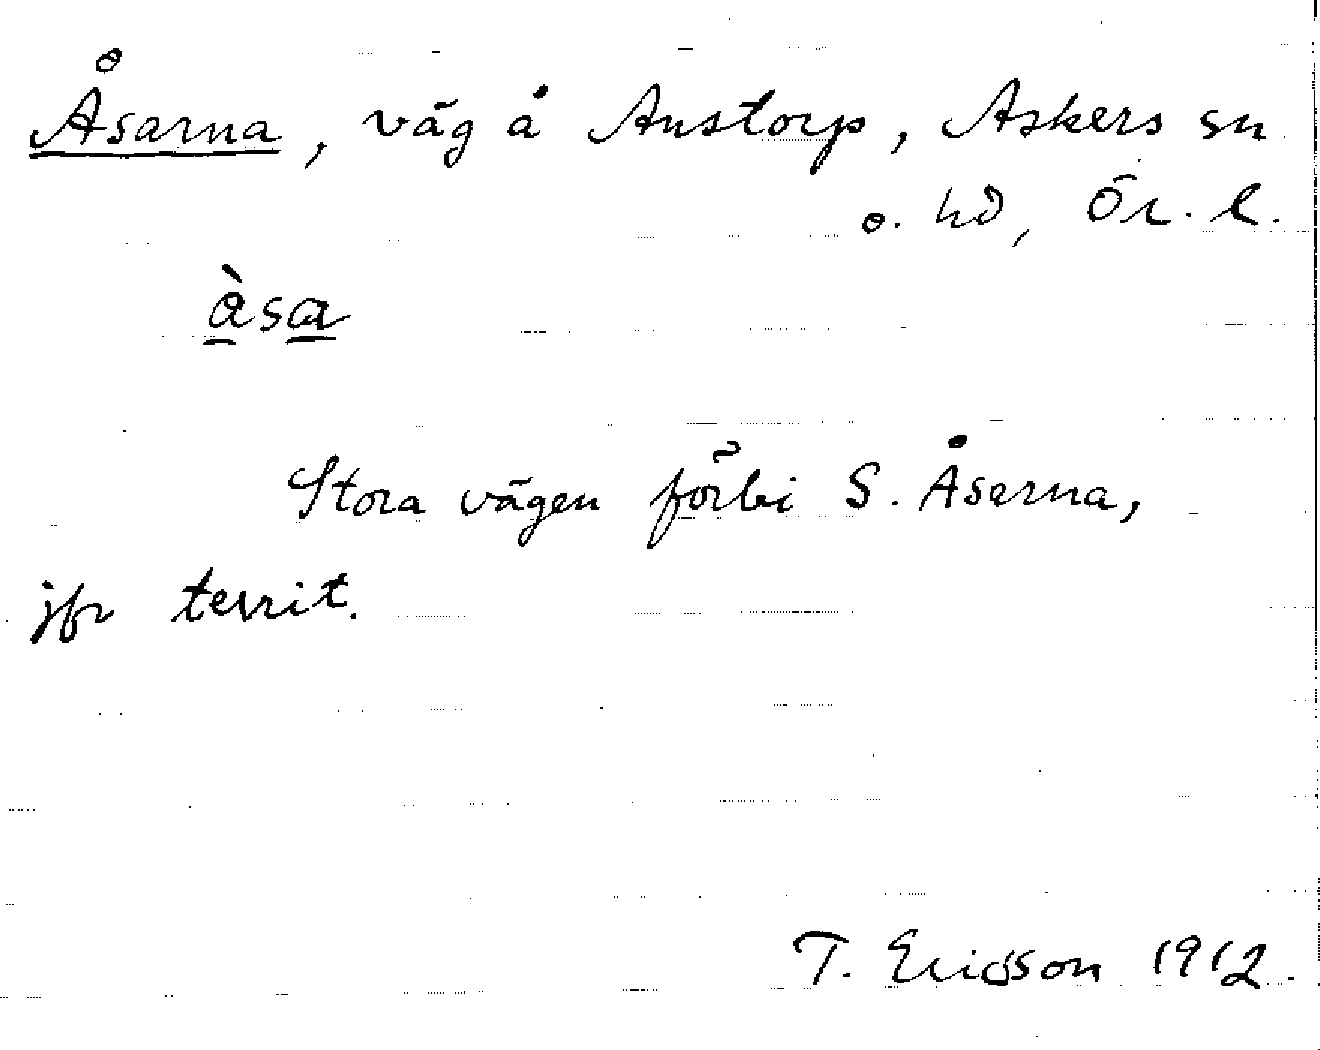 Åsarna, väg å Anstorp, Askers sn
o. hd, Ör. l.
àsa
Stora vägen förbi S. Åsarna,
jfr territ.
T. Ericsson 1912.